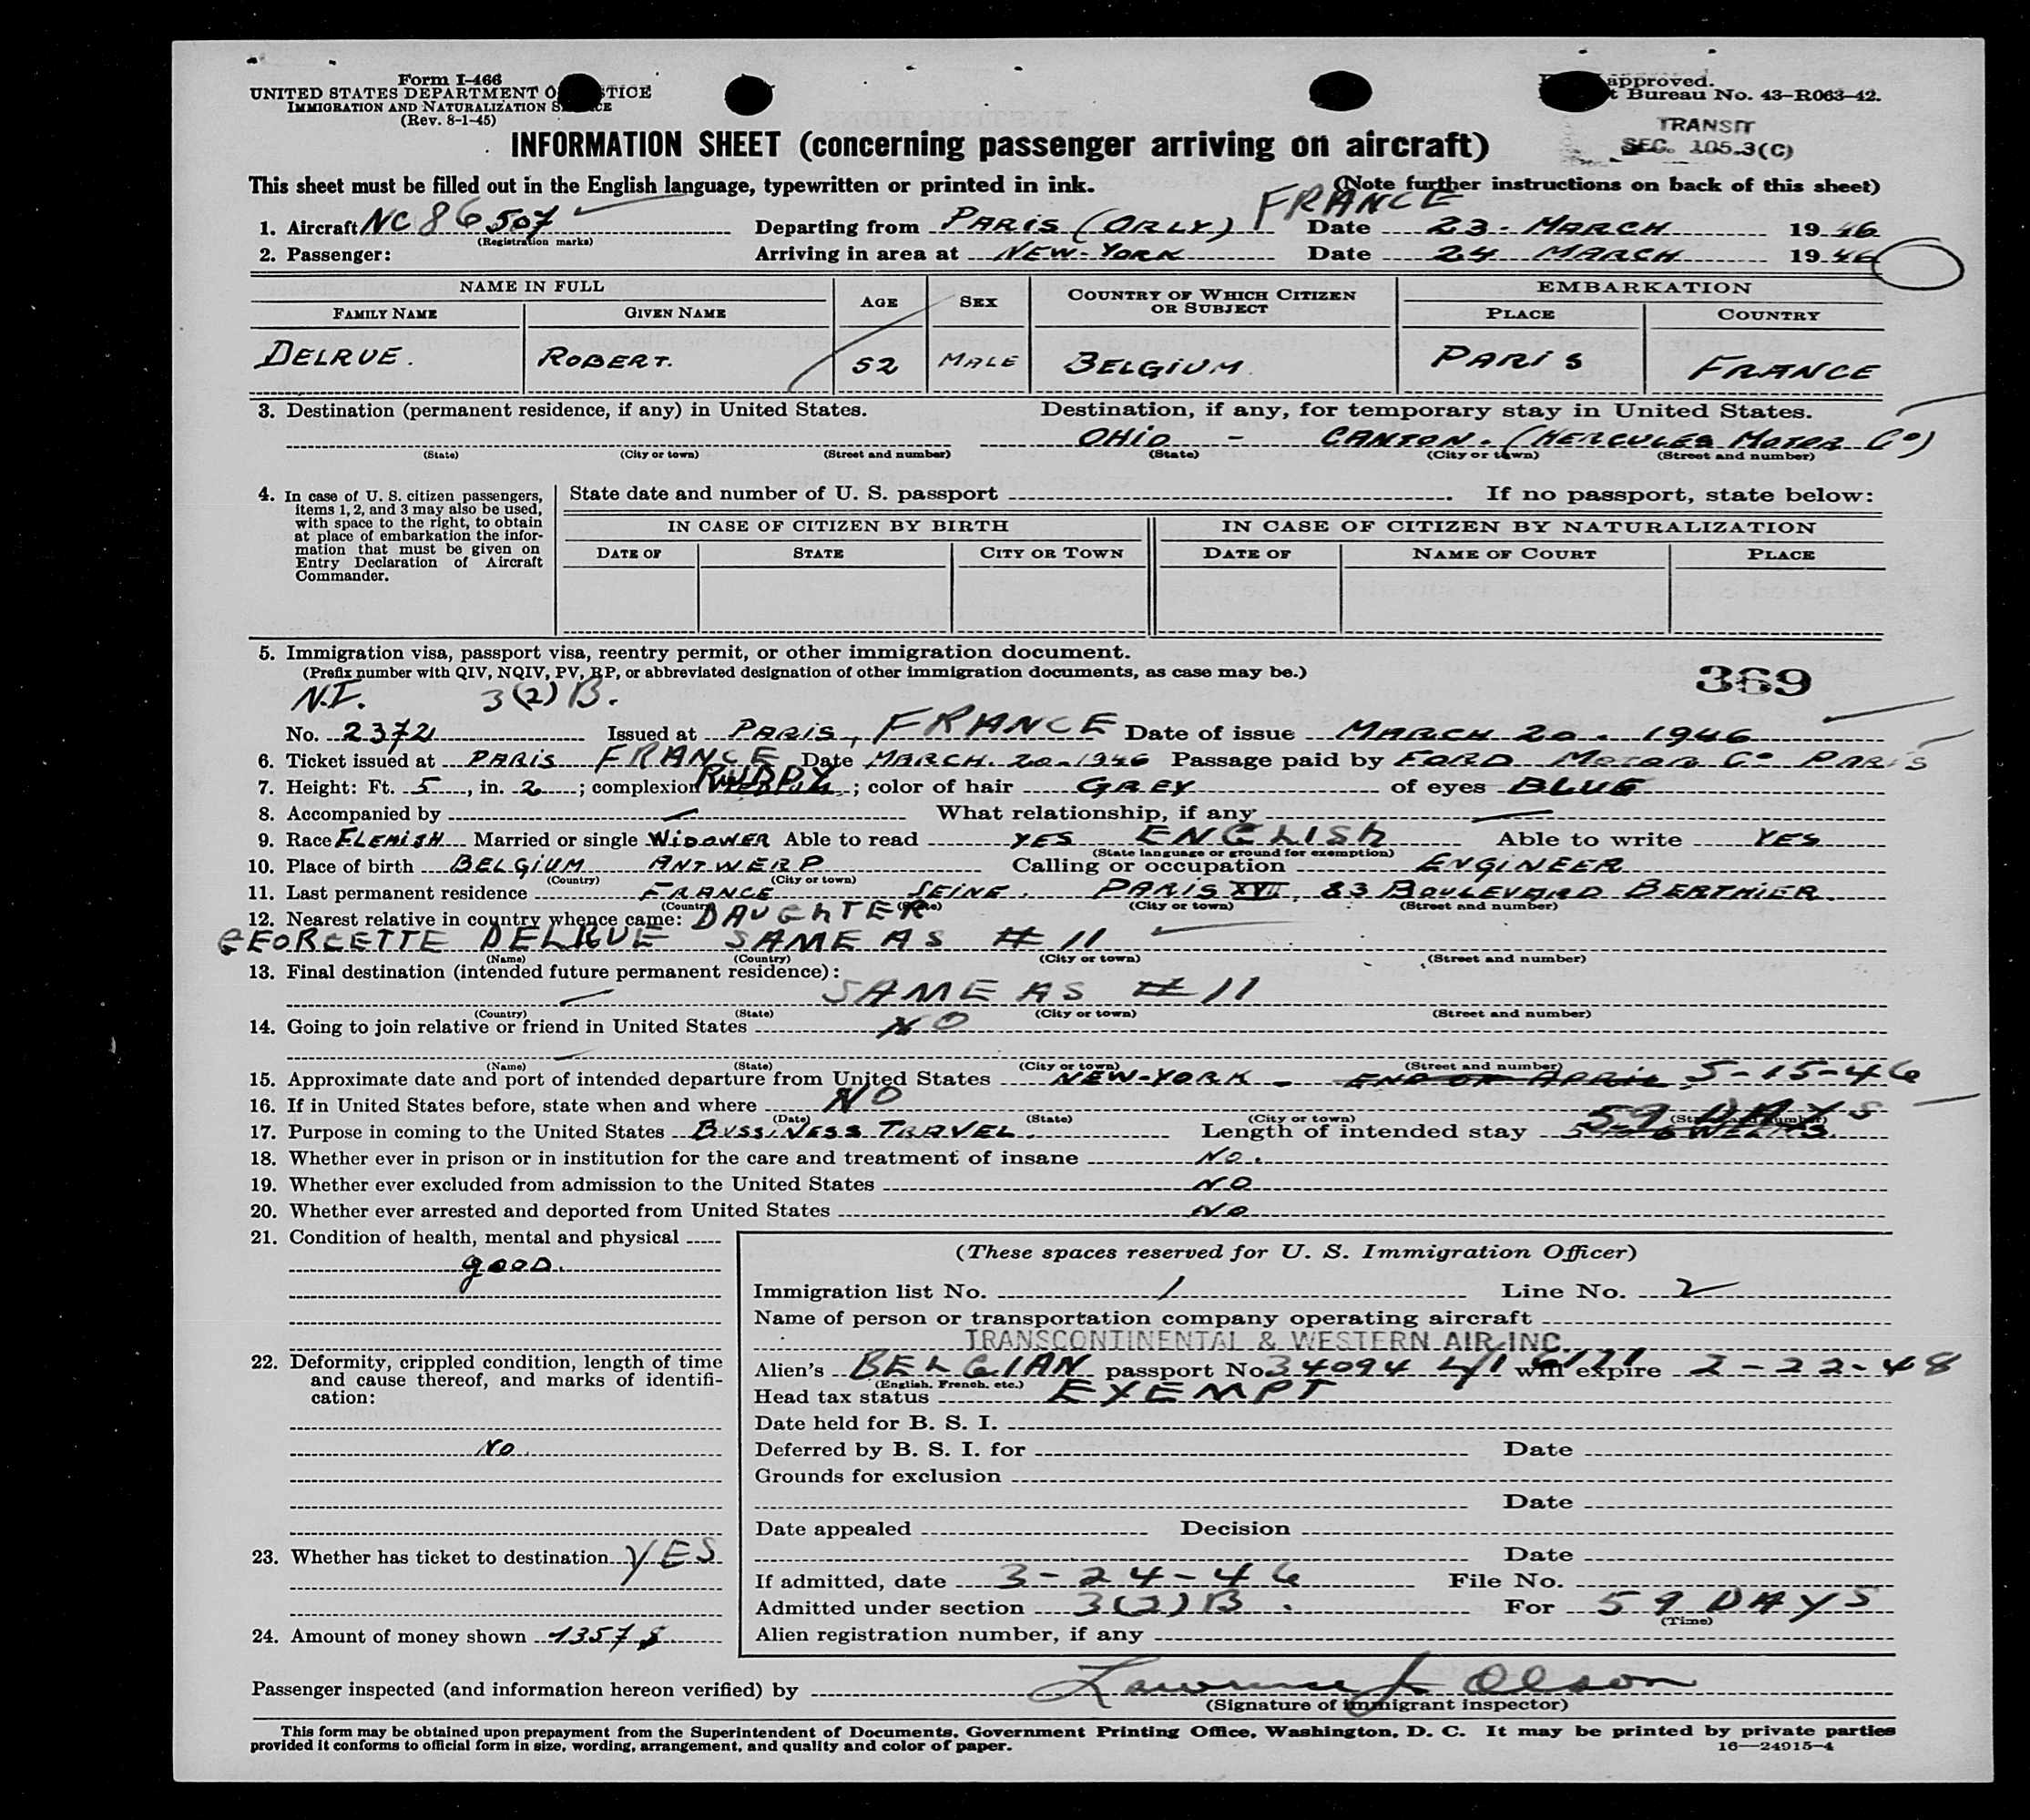 Form I-466
UNITED STATES DEPARTMENT O TICE
IMMIGRATION AND NATURALIZATION S CE
(Rev. 8-1-45)
approved.
t Bureau No. 43-R063-42.
TRANSIT
SEC. 105.3(C)
INFORMATION SHEET (concerning passenger arriving on aircraft)
This sheet must be filled out in the English language, typewritten or printed in ink. (Note further instructions on back of this sheet)
1. Aircraft NC 86507 Departing from PARIS (ORLY) FRANCE Date 23. MARCH 1946
(Registration marks)
2. Passenger: Arriving in area at NEW-YORK Date 24 MARCH 1946
NAME IN FULL AGE SEX COUNTRY OF WHICH CITIZEN OR SUBJECT EMBARKATION
FAMILY NAME GIVEN NAME PLACE COUNTRY
DELRUE. ROBERT. 52 MALE BELGIUM. PARIS FRANCE
3. Destination (permanent residence, if any) in United States. Destination, if any, for temporary stay in United States.
OHIO - CANTON. (HERCULES MOTOR Co)
(State) (City or town) (Street and number) (State) (City or town) (Street and number)
4. In case of U. S. citizen passengers, items 1, 2, and 3 may also be used, with space to the right, to obtain at place of embarkation the information that must be given on Entry Declaration of Aircraft Commander.
State date and number of U. S. passport . If no passport, state below:
IN CASE OF CITIZEN BY BIRTH IN CASE OF CITIZEN BY NATURALIZATION
DATE OF STATE CITY OR TOWN DATE OF NAME OF COURT PLACE
5. Immigration visa, passport visa, reentry permit, or other immigration document.
(Prefix number with QIV, NQIV, PV, RP, or abbreviated designation of other immigration documents, as case may be.) 369
N.I. 3(2)B.
No. 2372 Issued at PARIS, FRANCE Date of issue MARCH 20. 1946
6. Ticket issued at PARIS FRANCE Date MARCH. 20-1946 Passage paid by FORD MOTOR Co PARIS
7. Height: Ft. 5, in. 2; complexion RUDDY; color of hair GREY of eyes BLUE
8. Accompanied by — What relationship, if any —
9. Race FLEMISH Married or single WIDOWER Able to read YES ENGLISH Able to write YES
(State language or ground for exemption)
10. Place of birth BELGIUM ANTWERP Calling or occupation ENGINEER
(Country) (City or town)
11. Last permanent residence FRANCE SEINE. PARIS XVII, 83 BOULEVARD BERTHIER.
(Country) (State) (City or town) (Street and number)
12. Nearest relative in country whence came: DAUGHTER
GEORGETTE DELRUE SAME AS # 11
(Name) (Country) (City or town) (Street and number)
13. Final destination (intended future permanent residence):
— SAME AS # 11
(Country) (State) (City or town) (Street and number)
14. Going to join relative or friend in United States NO
(Name) (State) (City or town) (Street and number)
15. Approximate date and port of intended departure from United States NEW-YORK - END OF APRIL 5-15-46
16. If in United States before, state when and where NO
(Date) (State) (City or town) (Street and number)
17. Purpose in coming to the United States BUSSINESS TRAVEL. Length of intended stay 59 DAYS
18. Whether ever in prison or in institution for the care and treatment of insane NO.
19. Whether ever excluded from admission to the United States NO
20. Whether ever arrested and deported from United States NO
21. Condition of health, mental and physical
good.
22. Deformity, crippled condition, length of time and cause thereof, and marks of identification:
NO
23. Whether has ticket to destination YES
24. Amount of money shown 1357 $
(These spaces reserved for U. S. Immigration Officer)
Immigration list No. 1 Line No. 2
Name of person or transportation company operating aircraft
TRANSCONTINENTAL & WESTERN AIR, INC.
Alien's BELGIAN passport No 34094 will expire 2-22-48
(English, French, etc.)
Head tax status EXEMPT
Date held for B. S. I.
Deferred by B. S. I. for Date
Grounds for exclusion
Date
Date appealed Decision
Date
If admitted, date 3-24-46 File No.
Admitted under section 3(2)B. For 59 DAYS
(Time)
Alien registration number, if any
Passenger inspected (and information hereon verified) by Lawrence J Olson
(Signature of immigrant inspector)
This form may be obtained upon prepayment from the Superintendent of Documents, Government Printing Office, Washington, D. C. It may be printed by private parties
provided it conforms to official form in size, wording, arrangement, and quality and color of paper. 16—24915-4